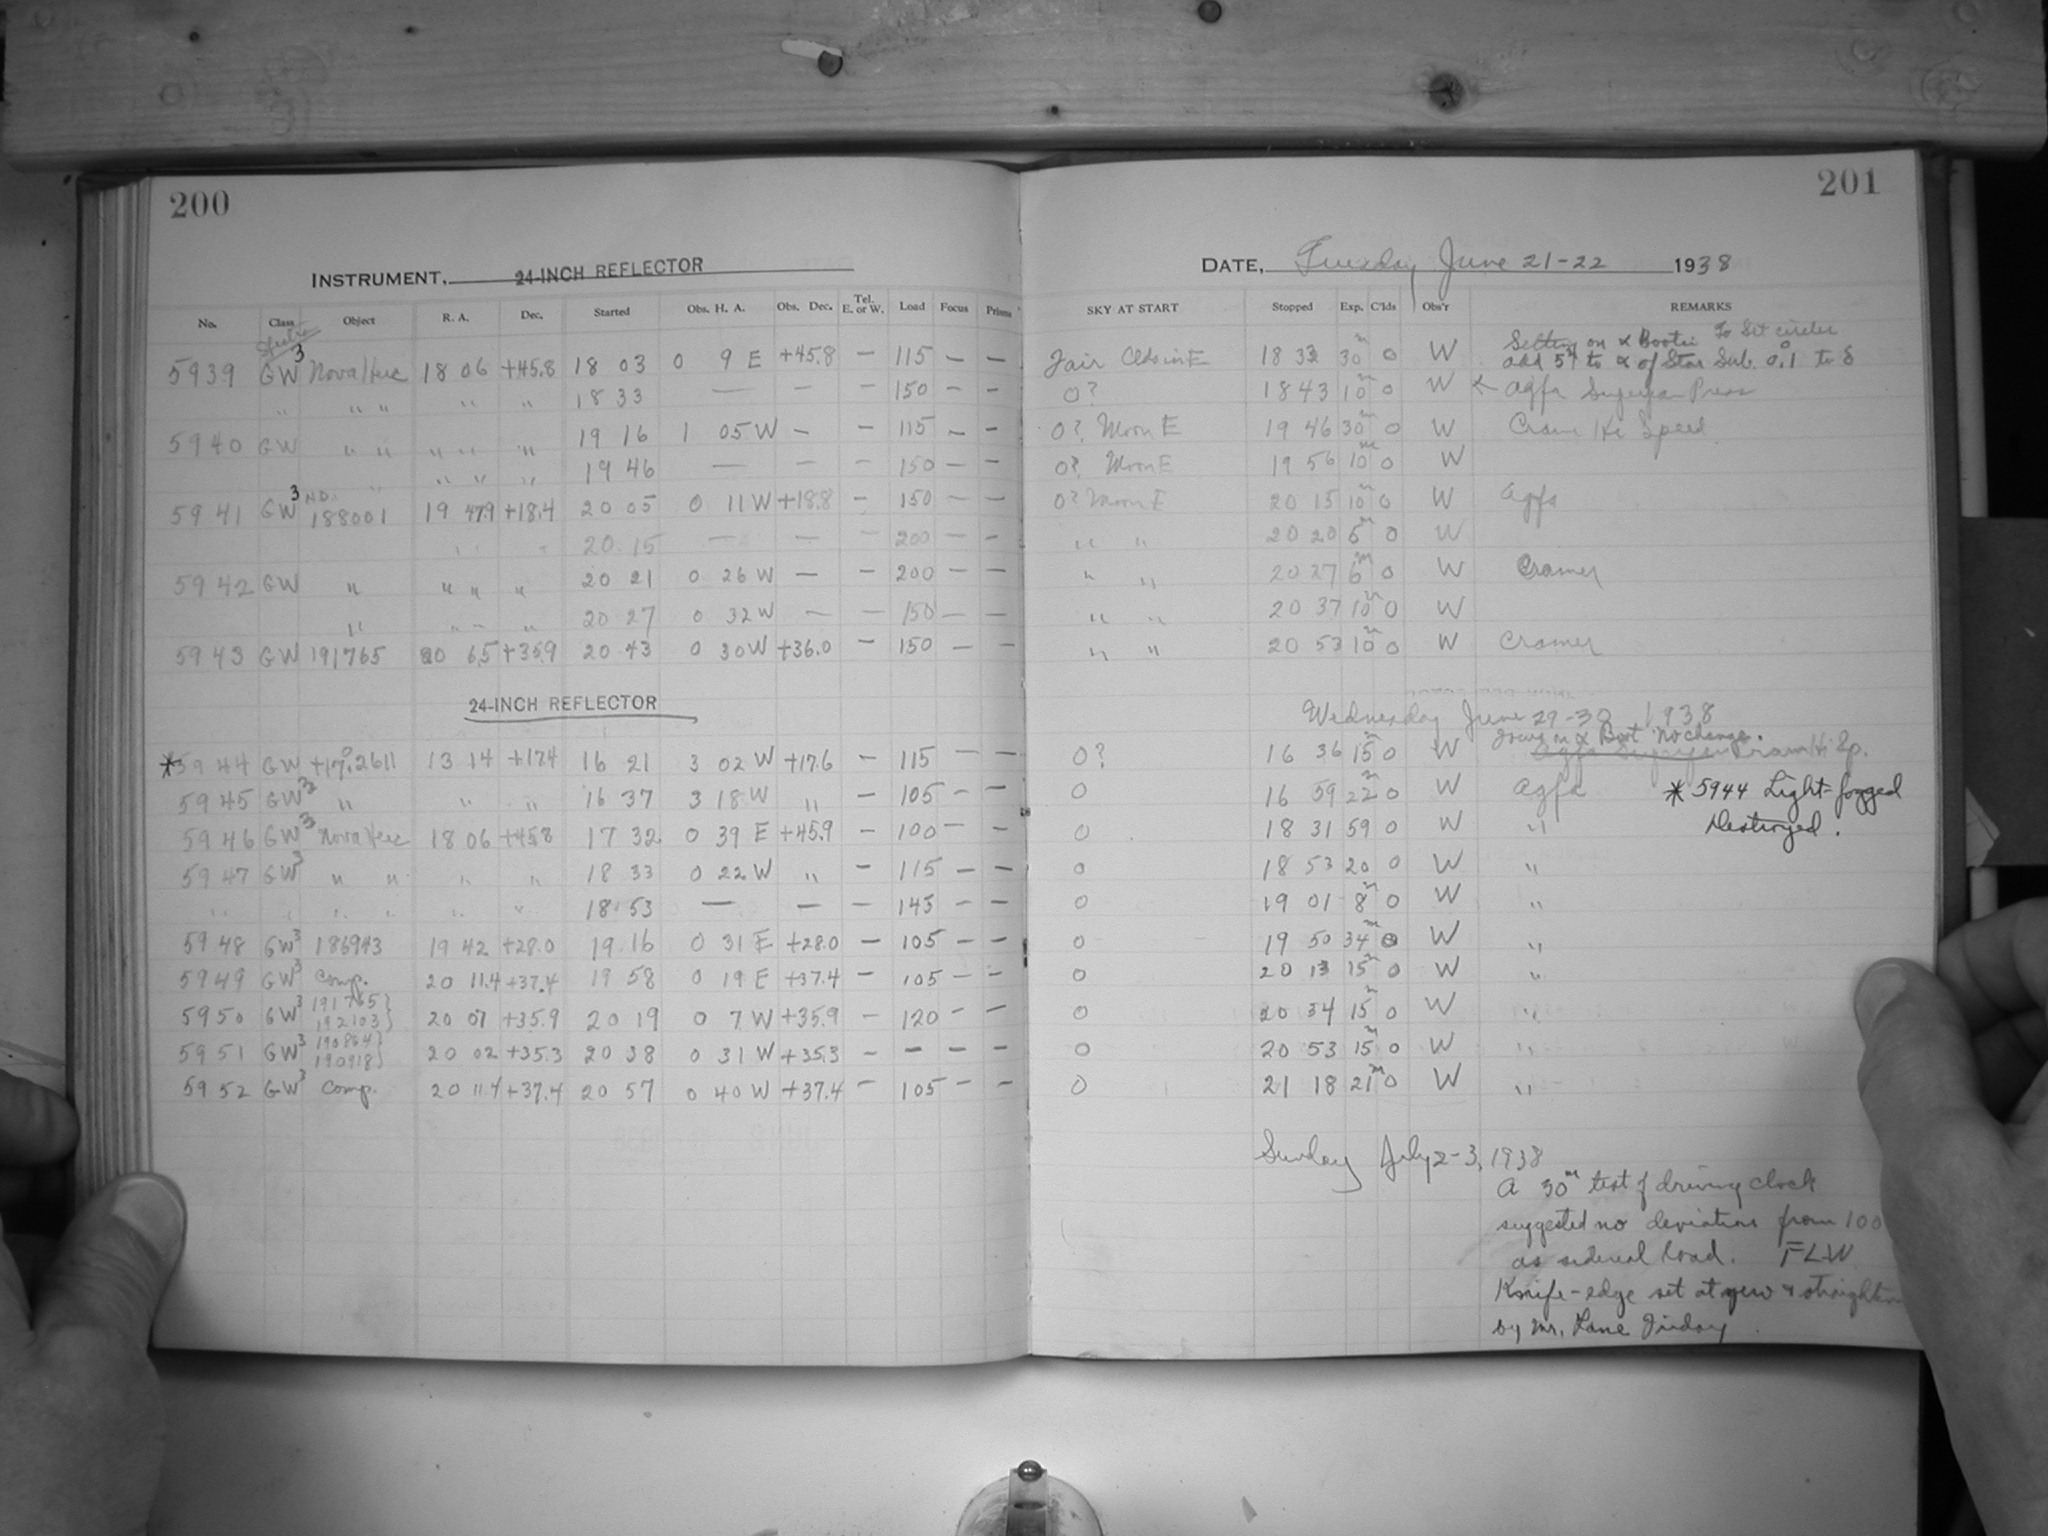 200
INSTRUMENT, 24-INCH REFLECTOR
No. Class Object R. A. Dec. Started Obs. H. A. Obs. Dec. Tel. E. or W. Load Focus Prisms
5939 GW3 Nova Herc 18 06 +45.8 18 03 0 9 E +45.8 — 115 — —
" " " " " 18 33 — — — 150 — —
5940 GW " " " " " 19 16 1 05 W — — 115 — —
" " " " 19 46 — — — 150 — —
5941 GW3 H.D. 188001 19 47.9 +18.4 20 05 0 11 W +18.8 — 150 — —
" " " 20 15 — — — 200 — —
5942 GW " " " " 20 21 0 26 W — — 200 — —
" " " " 20 27 0 32 W — — 150 — —
5943 GW 191765 20 6.5 +35.9 20 43 0 30 W +36.0 — 150 — —
24-INCH REFLECTOR
*5944 GW +17°.2611 13 14 +17.4 16 21 3 02 W +17.6 — 115 — —
5945 GW3 " " " 16 37 3 18 W " — 105 — —
5946 GW3 Nova Herc 18 06 +45.8 17 32 0 39 E +45.9 — 100 — —
5947 GW3 " " " " 18 33 0 22 W " — 115 — —
" " " " " " " 18 53 — — — 145 — —
5948 GW3 186943 19 42 +28.0 19 16 0 31 E +28.0 — 105 — —
5949 GW3 Comp. 20 11.4 +37.4 19 58 0 19 E +37.4 — 105 — —
5950 GW3 191765 } 192103 } 20 07 +35.9 20 19 0 7 W +35.9 — 120 — —
5951 GW3 190864 } 190918 } 20 02 +35.3 20 38 0 31 W +35.3 — — — —
5952 GW3 Comp. 20 11.4 +37.4 20 57 0 40 W +37.4 — 105 — —
201
DATE, Tuesday June 21-22 1938
SKY AT START Stopped Exp. C'lds Obs'r REMARKS
Setting on α Bootis To Set circles
Fair Clds in E 18 33 30m 0 W add 5m to α of Star Sub. 0°.1 to δ
0? 18 43 10m 0 W Agfa Press
0? Moon E 19 46 30m 0 W Cram Hi Speed
0? Moon E 19 56 10m 0 W
0? Moon E 20 15 10m 0 W Agfa
" " 20 20 5m 0 W
" " 20 27 6m 0 W Cramer
" " 20 37 10m 0 W
" " 20 53 10m 0 W Cramer
Wednesday June 29-30 1938
Focus on α Boot no change.
0? 16 36 15m 0 W Cram Hi Sp.
0 16 59 22m 0 W Agfa * 5944 Light-fogged
0 18 31 59 0 W " Destroyed.
0 18 53 20 0 W "
0 19 01 8m 0 W "
0 19 50 34m 0 W "
0 20 13 15m 0 W "
0 20 34 15m 0 W "
0 20 53 15m 0 W "
0 21 18 21m 0 W "
Sunday July 2-3, 1938
A 30m test of driving clock
suggested no deviation from 100
as sidereal load. FLW
Knife-edge set at
by Mr. Lane Friday